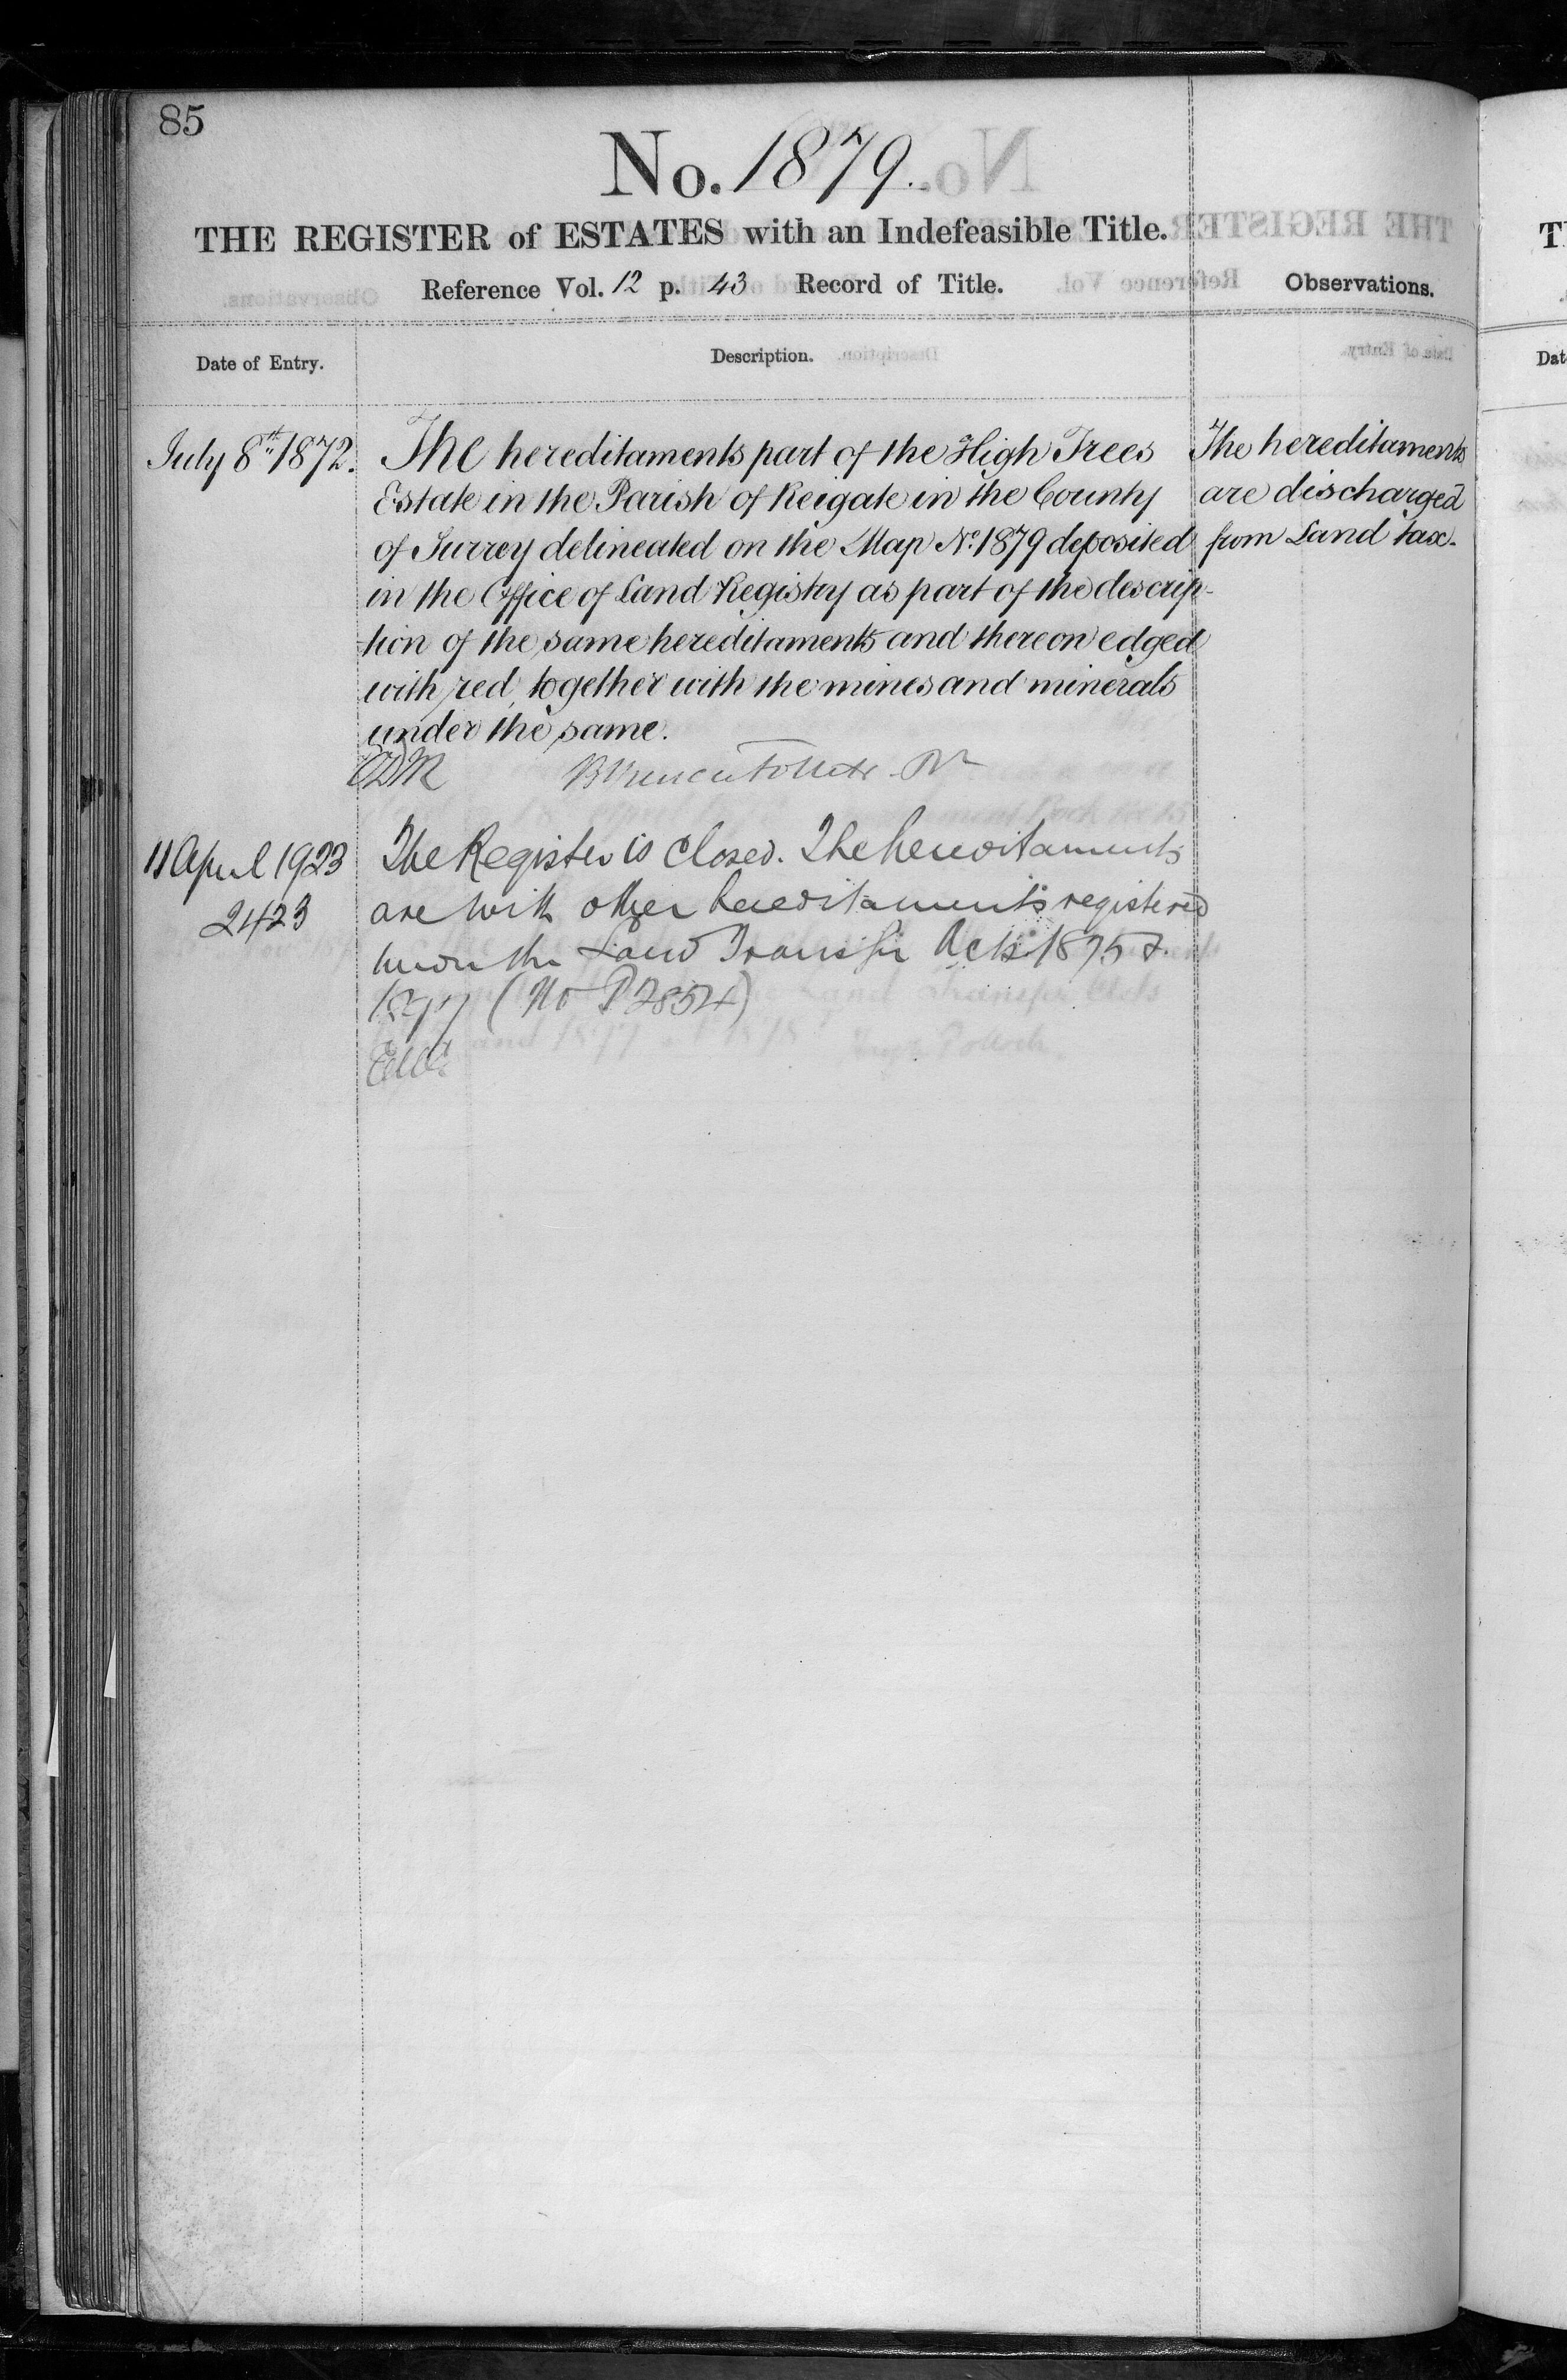 85
No. 1879.
THE REGISTER of ESTATES with an Indefeasible Title.
Reference Vol. 12 p. 43 Record of Title.
Observations.
Date of Entry.
Description.
July 8th 1872.
The hereditaments part of the High Trees
Estate in the Parish of Reigate in the County
of Surrey delineated on the Map No. 1879 deposited
in the Office of Land Registry as part of the descrip-
tion of the same hereditaments and thereon edged
with red, together with the mines and minerals
under the same.
The hereditaments
are discharged
from Land tax.
11 April 1923
2423
The Register is closed. The hereditaments
are with other hereditaments registered
under the Land Transfer Acts 1875 &
1897 (No P2854)